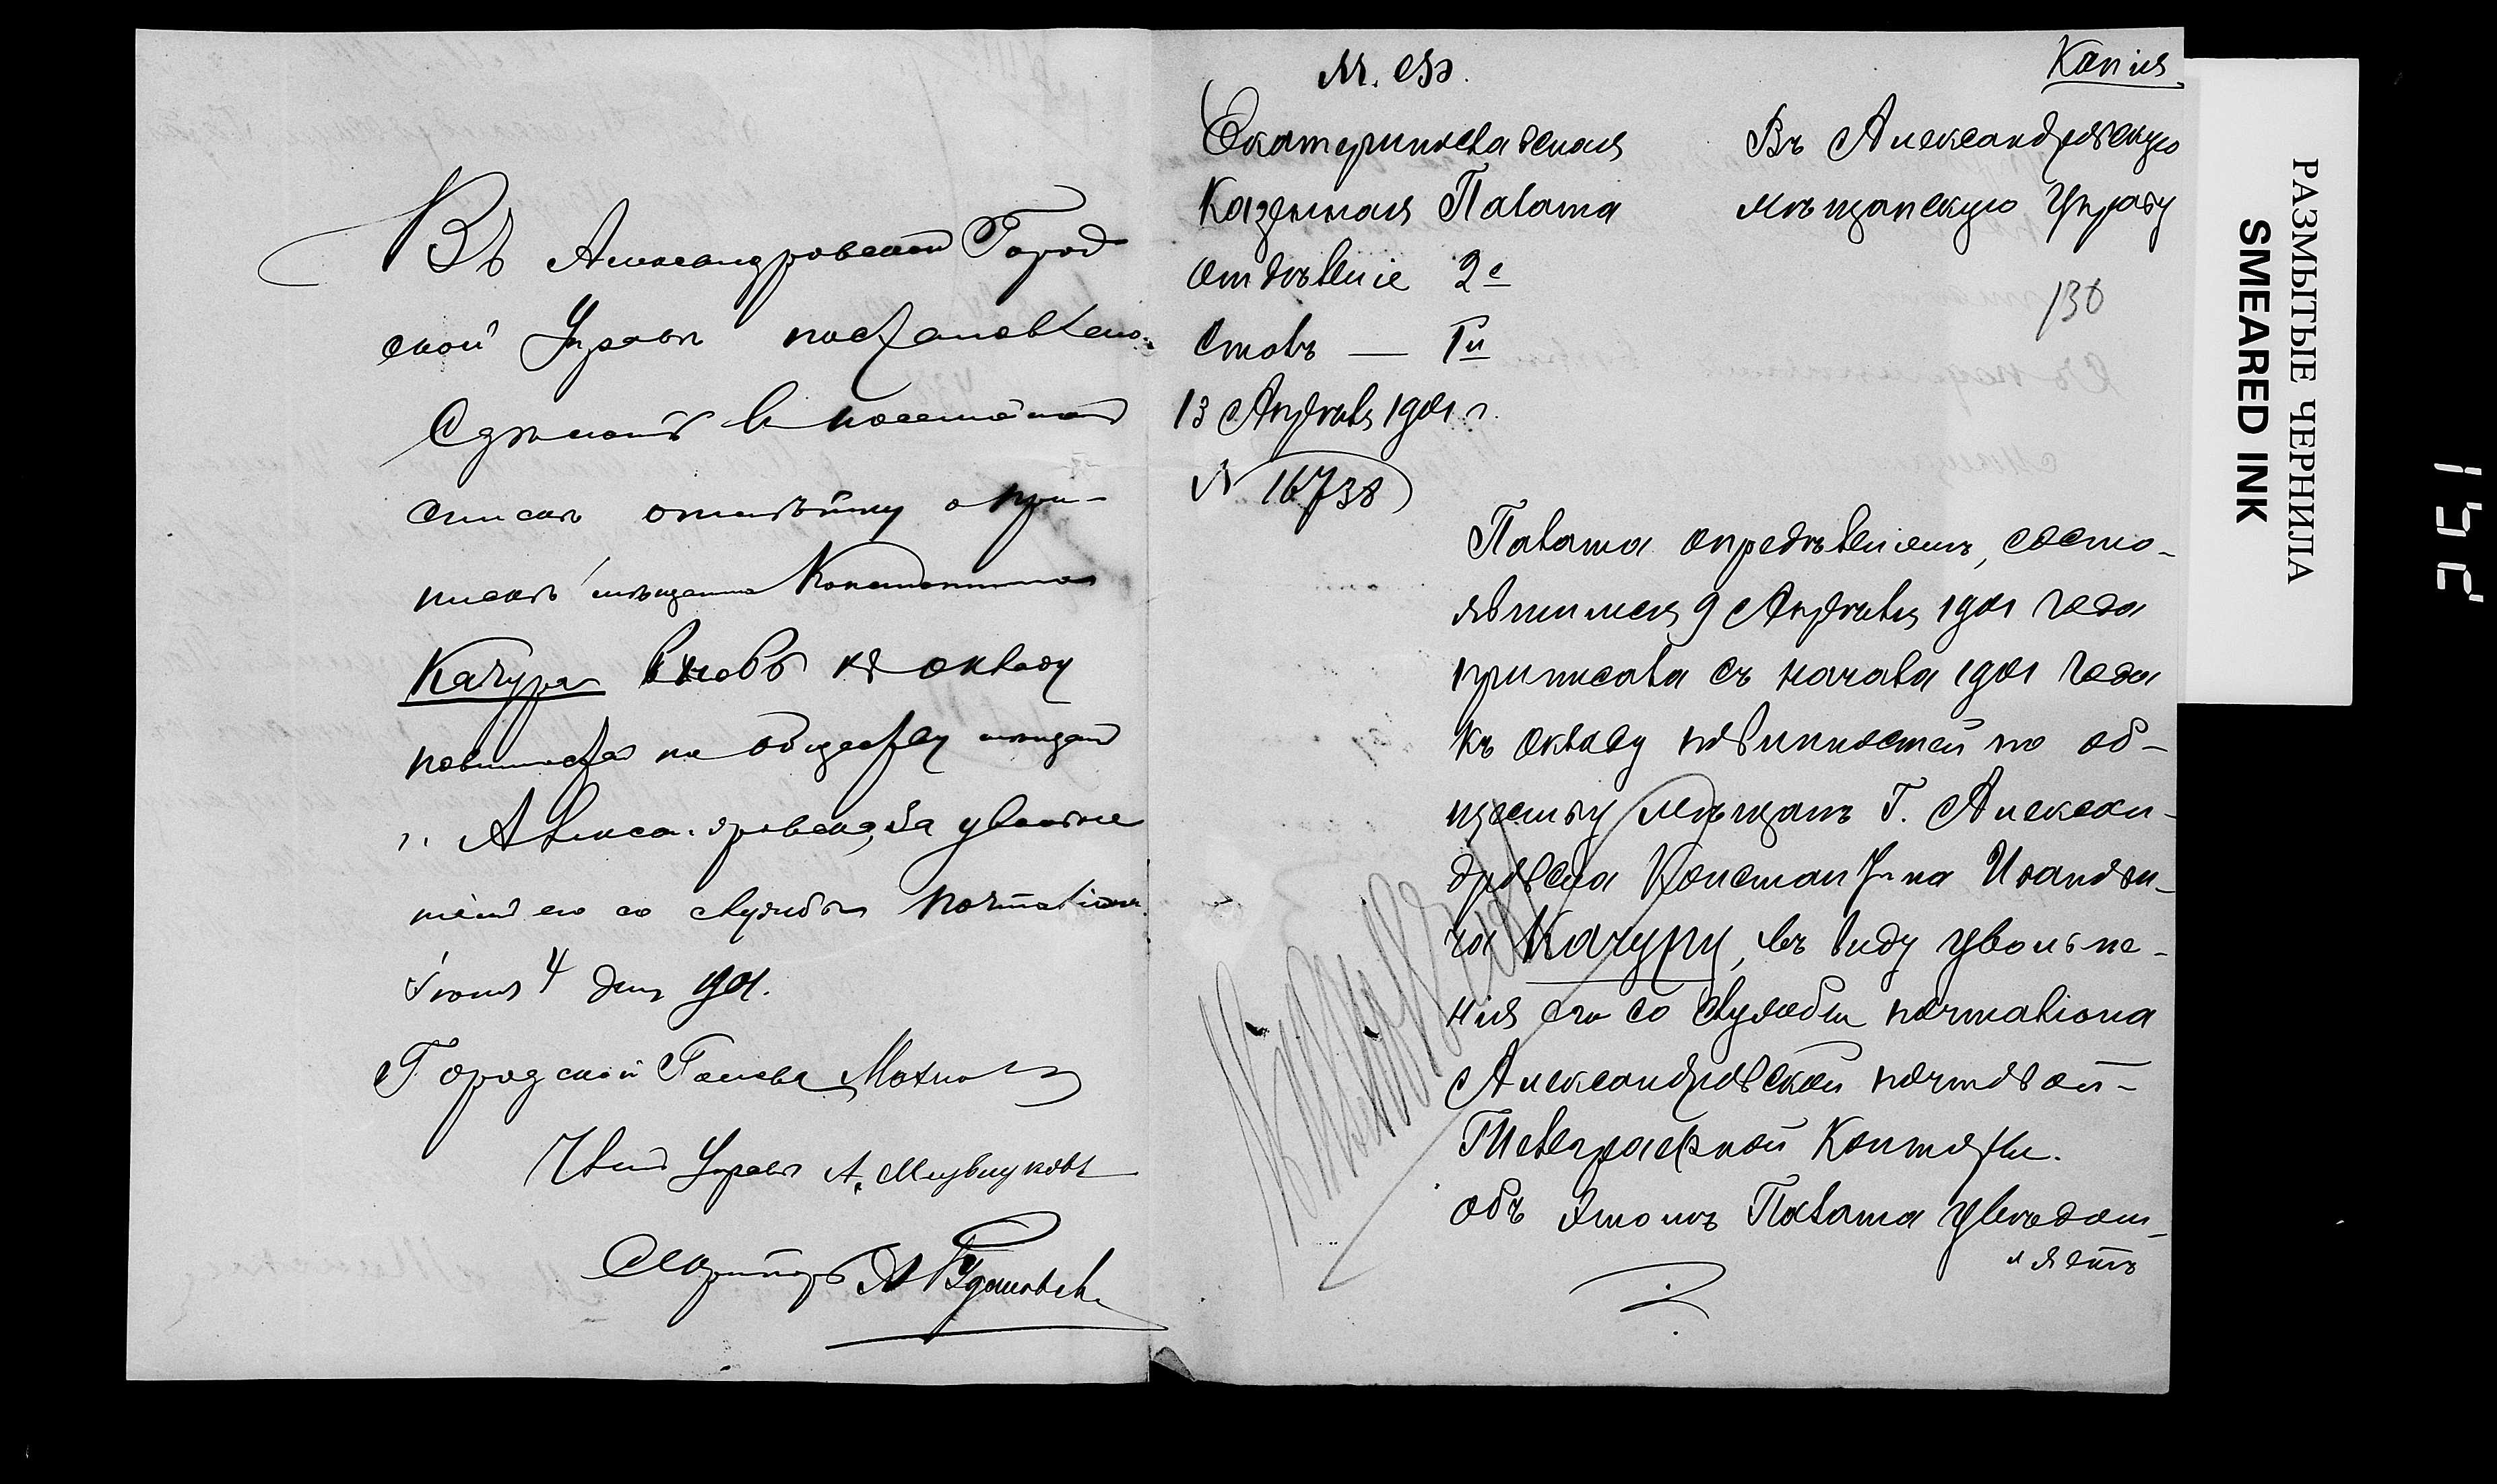 Въ Александровской Город
ской Управѣ постановлено:
Сдѣлать въ посемейномъ
спискѣ отмѣтку о при-
пискѣ мѣщанина Константина
Качура вновь къ окладу
повинностей по обществу мѣщанъ
г. Александровска, за увольне
ніемъ его со службы почталіона.
Іюня 4 дня 1901.
Городской Голова
Членъ Управы А.
Секретарь А
М. Ф.
Копия
Екатеринославская
Казенная Палата
Отдѣленіе 2е
Столъ — 1й
13 Апрѣля 1901 г.
№ 16738
Въ Александровскую
мѣщанскую Управу
130
Палата опредѣленіемъ, состо-
явшимся 9 Апрѣля 1901 года
приписала съ начала 1901 года
къ окладу повинностей по об-
ществу мѣщанъ г. Алексан-
дровска Константина Иванови-
ча Качуру, въ виду увольне-
нія его со службы почталіона
Александровской почтовой-
Телеграфной Конторы.
Объ этомъ Палата увѣдом-
ляетъ
РАЗМЫТЫЕ ЧЕРНИЛА
SMEARED INK